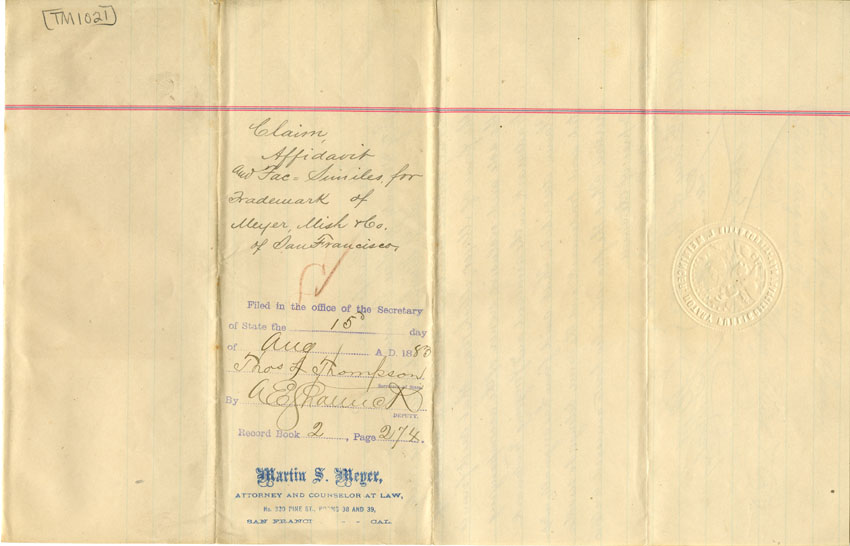 [TM1021]
Claim,
Affidavit
and Fac-Similes, for
Trademark of
Meyer, Mish & Co.
of San Francisco,
Filed in the office of the Secretary
of State the 15th day
of Aug A. D. 1883
Thos L Thompson
Secretary of State
By A E
DEPUTY.
Record Book 2, Page 274.
Martin S. Meyer,
ATTORNEY AND COUNSELOR AT LAW,
No. 320 PINE ST., ROOMS 38 AND 39,
SAN FRANCI - - CAL.